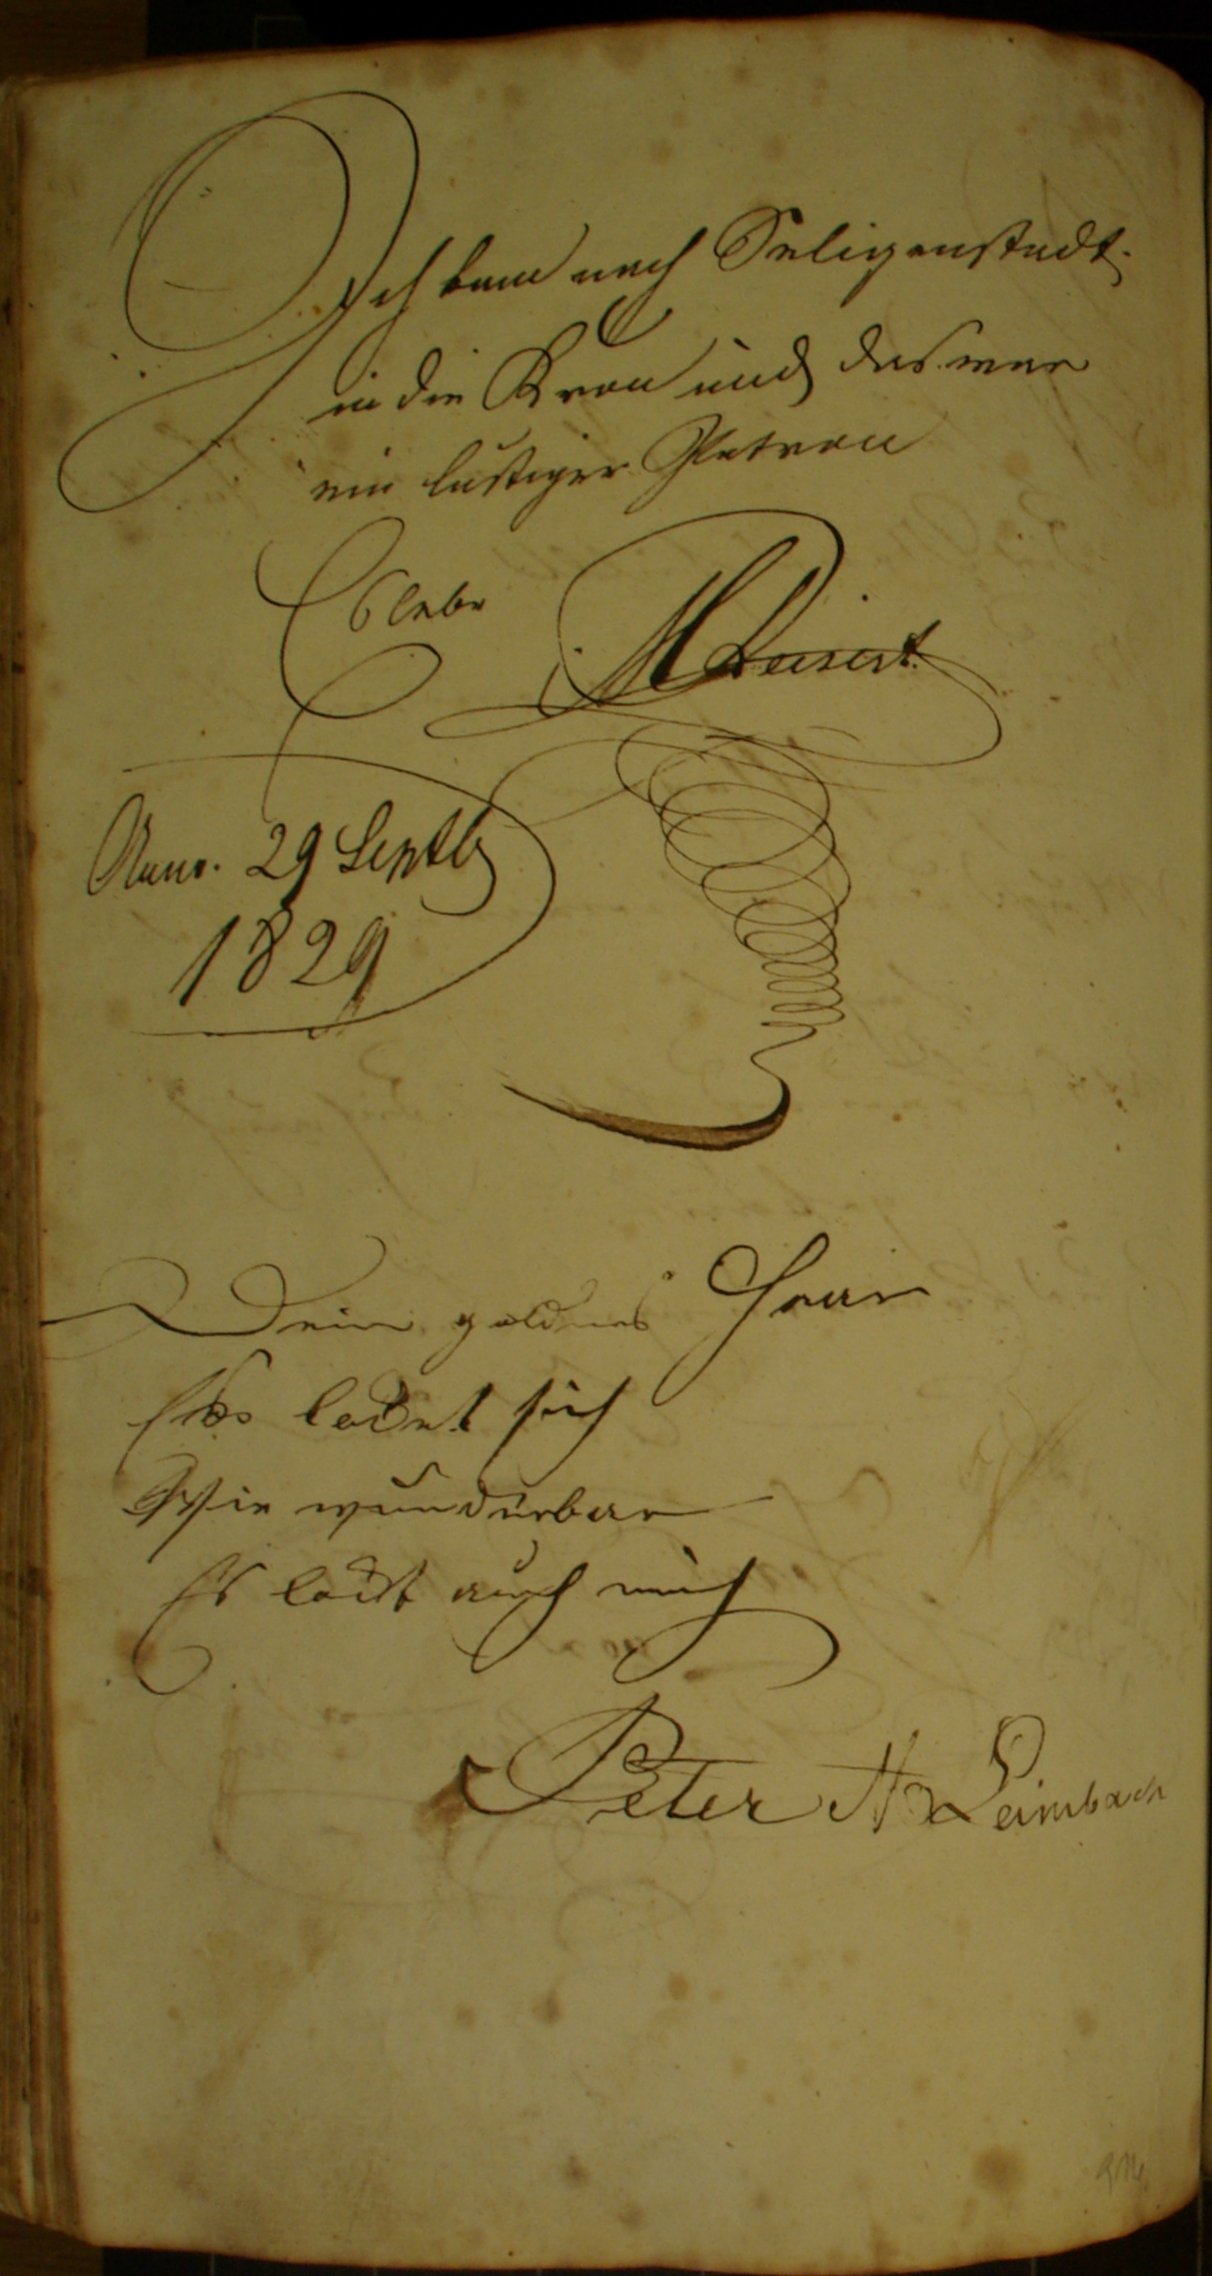 Ich kam nach Seligenstadt.
in die Kron und das war
ein lustiger Patron
Es lebe
Anno. 29 Septb
1829
Dein goldnes Haar
Es locket sich
Wie wunderbar
Es lockt auch mich
Peter Leimbach